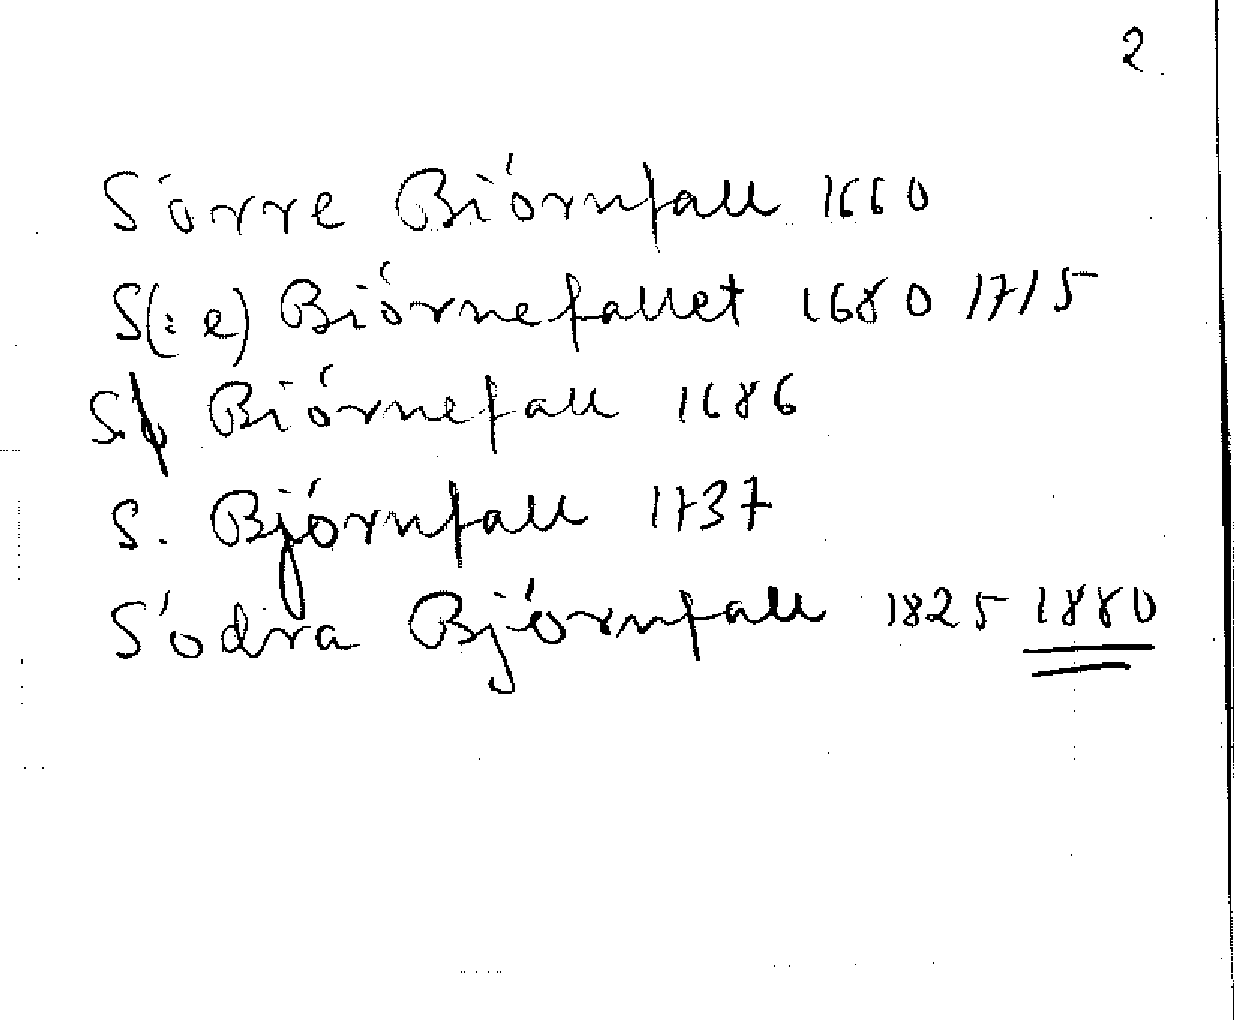 2
Sörre Biörnfall 1660
S(:e) Biörnefallet 1680 1715
S. Biörnefall 1686
S. Björnfall 1737
Södra Björnfall 1825 1880